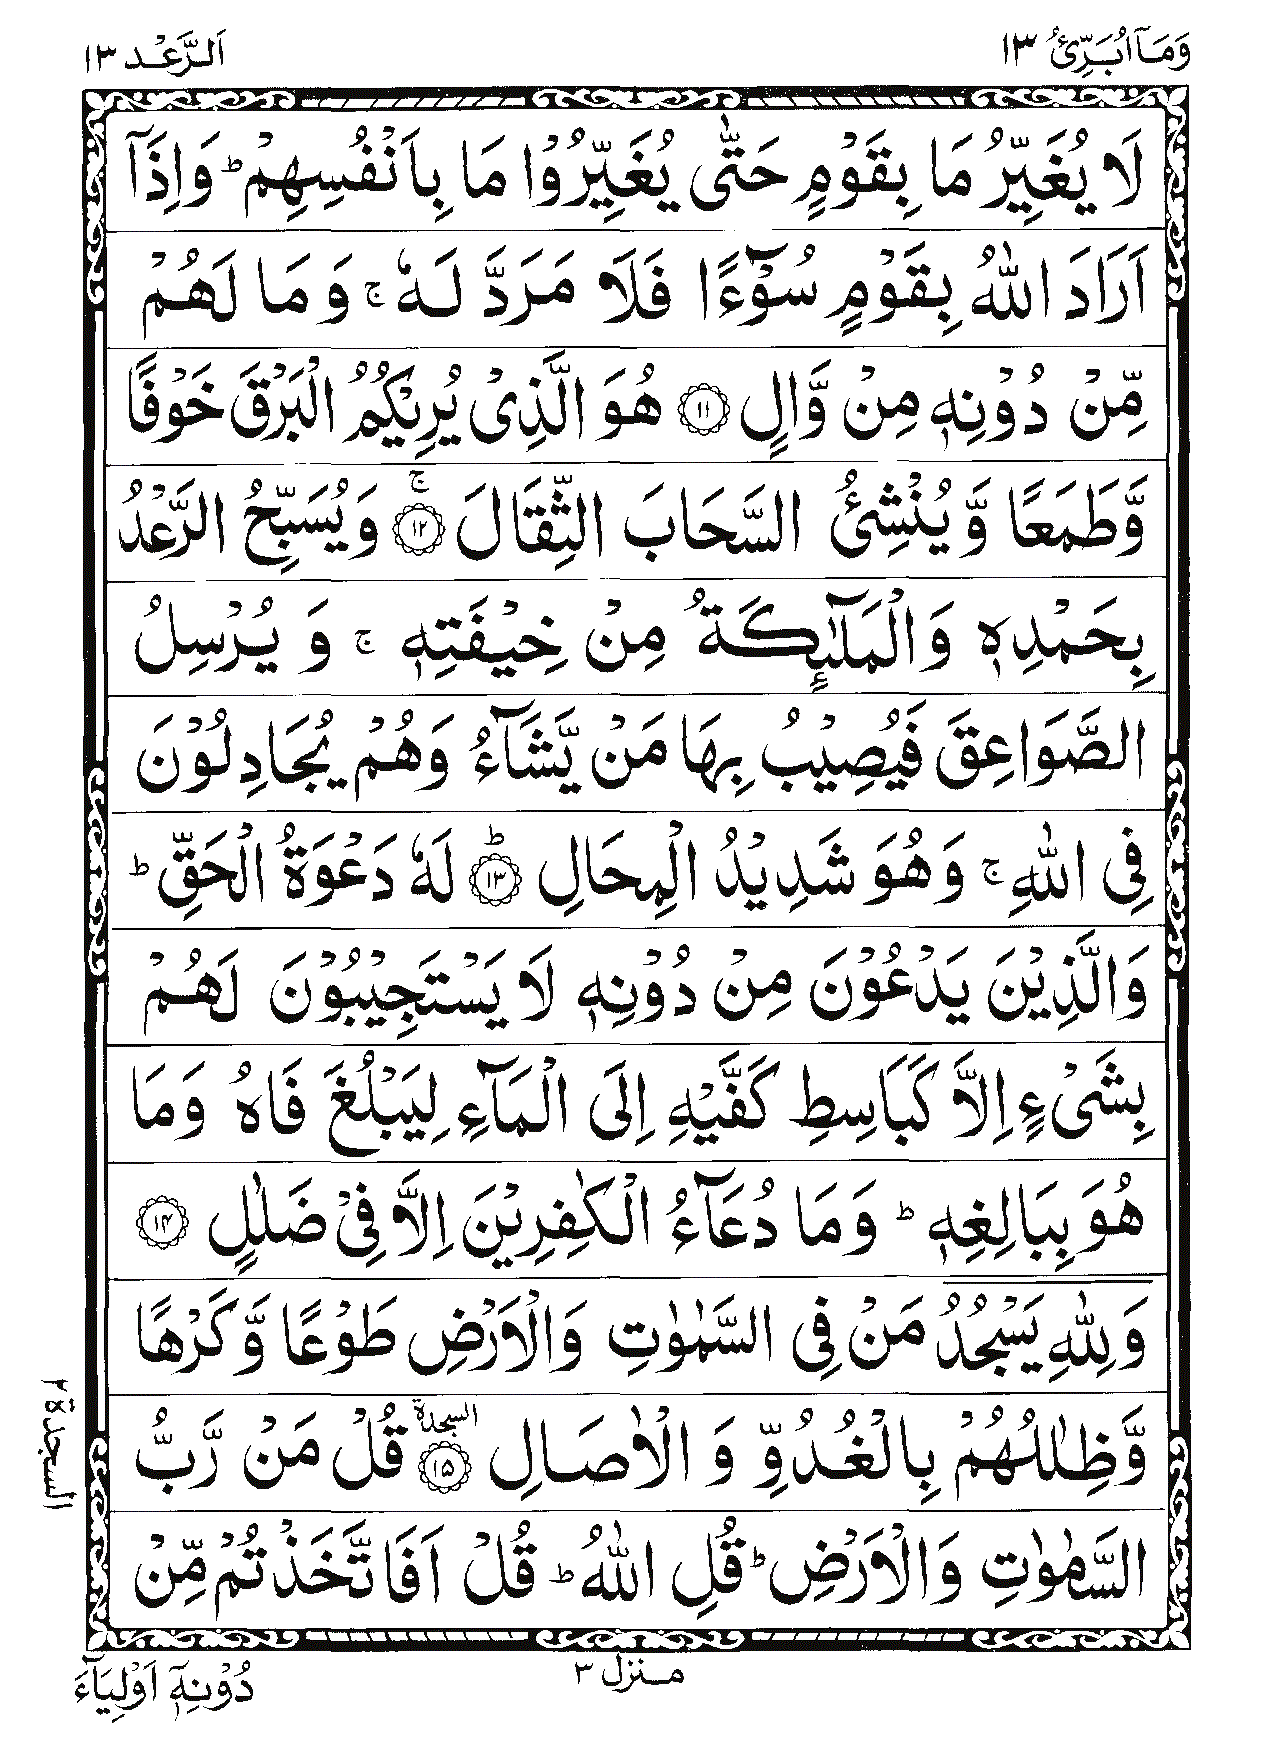 وَمَاۤ اُبَرِّئُ ١٣
اَلرَّعْد ١٣
لَا يُغَيِّرُ مَا بِقَوْمٍ حَتّٰى يُغَيِّرُوْا مَا بِاَنْفُسِهِمْ ؕ وَاِذَاۤ
اَرَادَ اللّٰهُ بِقَوْمٍ سُوْٓءًا فَلَا مَرَدَّ لَهٗ ۚ وَ مَا لَهُمْ
مِّنْ دُوْنِهٖ مِنْ وَّالٍ ۝١١ هُوَ الَّذِىْ يُرِيْكُمُ الْبَرْقَ خَوْفًا
وَّطَمَعًا وَّ يُنْشِئُ السَّحَابَ الثِّقَالَ ۚ۝١٢ وَ يُسَبِّحُ الرَّعْدُ
بِحَمْدِهٖ وَ الْمَلٰٓئِكَةُ مِنْ خِيْفَتِهٖ ۚ وَ يُرْسِلُ
الصَّوَاعِقَ فَيُصِيْبُ بِهَا مَنْ يَّشَآءُ وَهُمْ يُجَادِلُوْنَ
فِى اللّٰهِ ۚ وَهُوَ شَدِيْدُ الْمِحَالِ ؕ۝١٣ لَهٗ دَعْوَةُ الْحَقِّ ؕ
وَالَّذِيْنَ يَدْعُوْنَ مِنْ دُوْنِهٖ لَا يَسْتَجِيْبُوْنَ لَهُمْ
بِشَىْءٍ اِلَّا كَبَاسِطِ كَفَّيْهِ اِلَى الْمَآءِ لِيَبْلُغَ فَاهُ وَمَا
هُوَ بِبَالِغِهٖ ؕ وَمَا دُعَآءُ الْكٰفِرِيْنَ اِلَّا فِىْ ضَلٰلٍ ۝١٤
وَلِلّٰهِ يَسْجُدُ مَنْ فِى السَّمٰوٰتِ وَالْاَرْضِ طَوْعًا وَّكَرْهًا
وَّظِلٰلُهُمْ بِالْغُدُوِّ وَ الْاٰصَالِ ۝١٥ السجدة قُلْ مَنْ رَّبُّ
السَّمٰوٰتِ وَالْاَرْضِ ؕ قُلِ اللّٰهُ ؕ قُلْ اَفَاتَّخَذْتُمْ مِّنْ
السجدة ٢
منزل ٣
دُوْنِهٖۤ اَوْلِيَآءَ